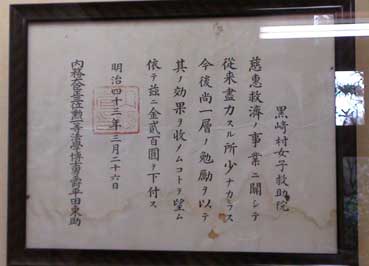 黒崎村女子救助院
慈恵救済ノ事業ニ関シテ
従来盡力スル所少ナカラス
今後尚一層ノ勉励ヲ以テ
其ノ効果ヲ收メムコトヲ望ム
依テ茲ニ金貳百圓ヲ下付ス
明治四十三年三月二十六日
内務大臣正三位勲一等法學博士男爵平田東助